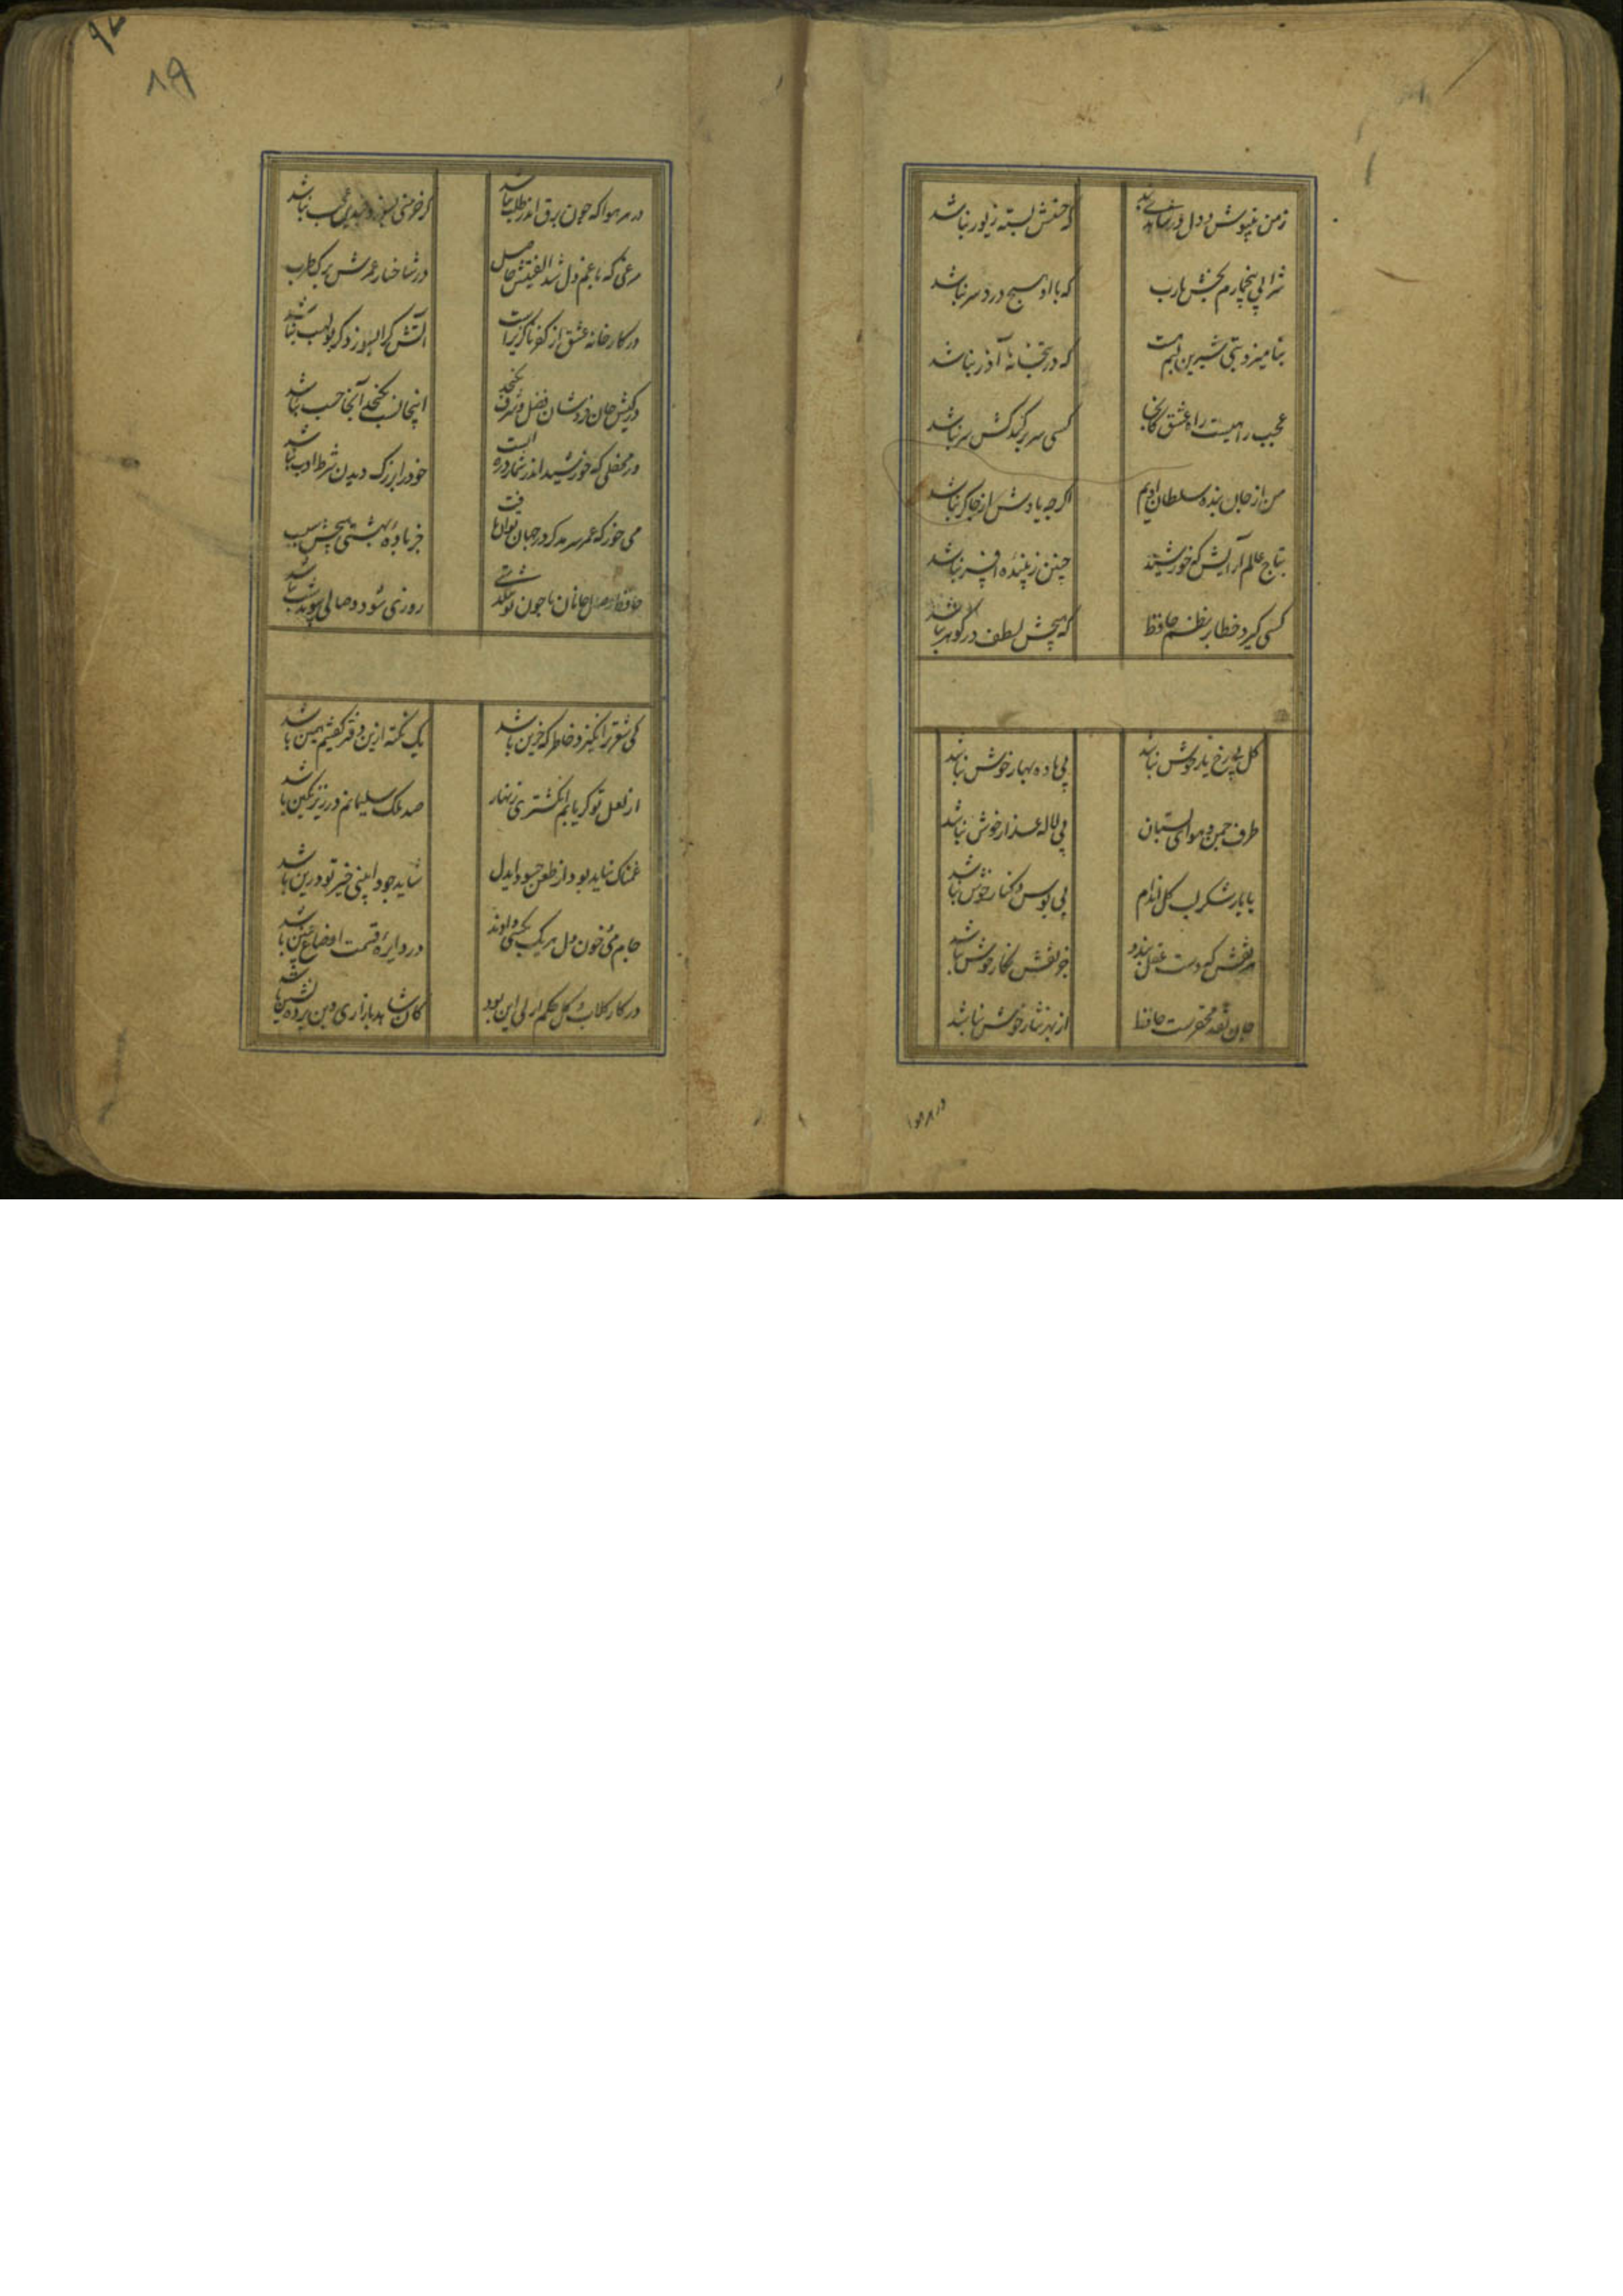 ز من بنیوش و دل در شاهدی بند
که حسنش بسته زیور نباشد
شرابی بی خمارم بخش یا رب
که با او هیچ درد سر نباشد
بنامیزد بتی سیمین تنم هست
که در بتخانه آذر نباشد
عجب راهیست راه عشق کانجا
کسی سر بر کند کش سر نباشد
من از جان بنده سلطان اویسم
اگرچه یادش از چاکر نباشد
بتاج عالم آرایش که خورشید
چنین زیبنده افسر نباشد
کسی گیرد خطا بر نظم حافظ
که هیچش لطف در گوهر نباشد
گل بی رخ یار خوش نباشد
بی باده بهار خوش نباشد
طرف چمن و هوای بستان
بی لاله عذار خوش نباشد
با یار شکر لب گل اندام
بی بوس و کنار خوش نباشد
هر نقش که دست عقل بندد
جز نقش نگار خوش نباشد
جان نقد محقرست حافظ
از بهر نثار خوش نباشد
در هر هوا
۸۹
در هر هوا که چون برق اندر طلب نباشد
گر خرمنی بسوزد چندین عجب نباشد
مرغی که با غم دل شد الفتیش حاصل
در شاخسار عمرش برگ طرب نباشد
در کارخانه عشق از کفر ناگزیر است
آتش کرا بسوزد گر بولهب نباشد
در کیش جان فروشان فضل و شرف نگنجد
اینجا نسب نگنجد آنجا حسب نباشد
در محفلی که خورشید اندر شمار ذره است
خود را بزرگ دیدن شرط ادب نباشد
می خور که عمر سرمد گر در جهان توان یافت
جز باده بهشتی هیچش سبب نباشد
حافظ وصل جانان با چون تو تنگدستی
روزی شود وصالی پیوند شب نباشد
کی شعر تر انگیزد خاطر که حزین باشد
یک نکته ازین دفتر گفتیم همین باشد
از لعل تو گر یابم انگشتری زنهار
صد ملک سلیمانم در زیر نگین باشد
غمناک نباید بود از طعن حسود ای دل
شاید چو وابینی خیر تو درین باشد
جام می و خون دل هر یک بکسی دادند
در دایره قسمت اوضاع چنین باشد
در کار گلاب و گل حکم ازلی این بود
کان شاهد بازاری وین پرده نشین باشد